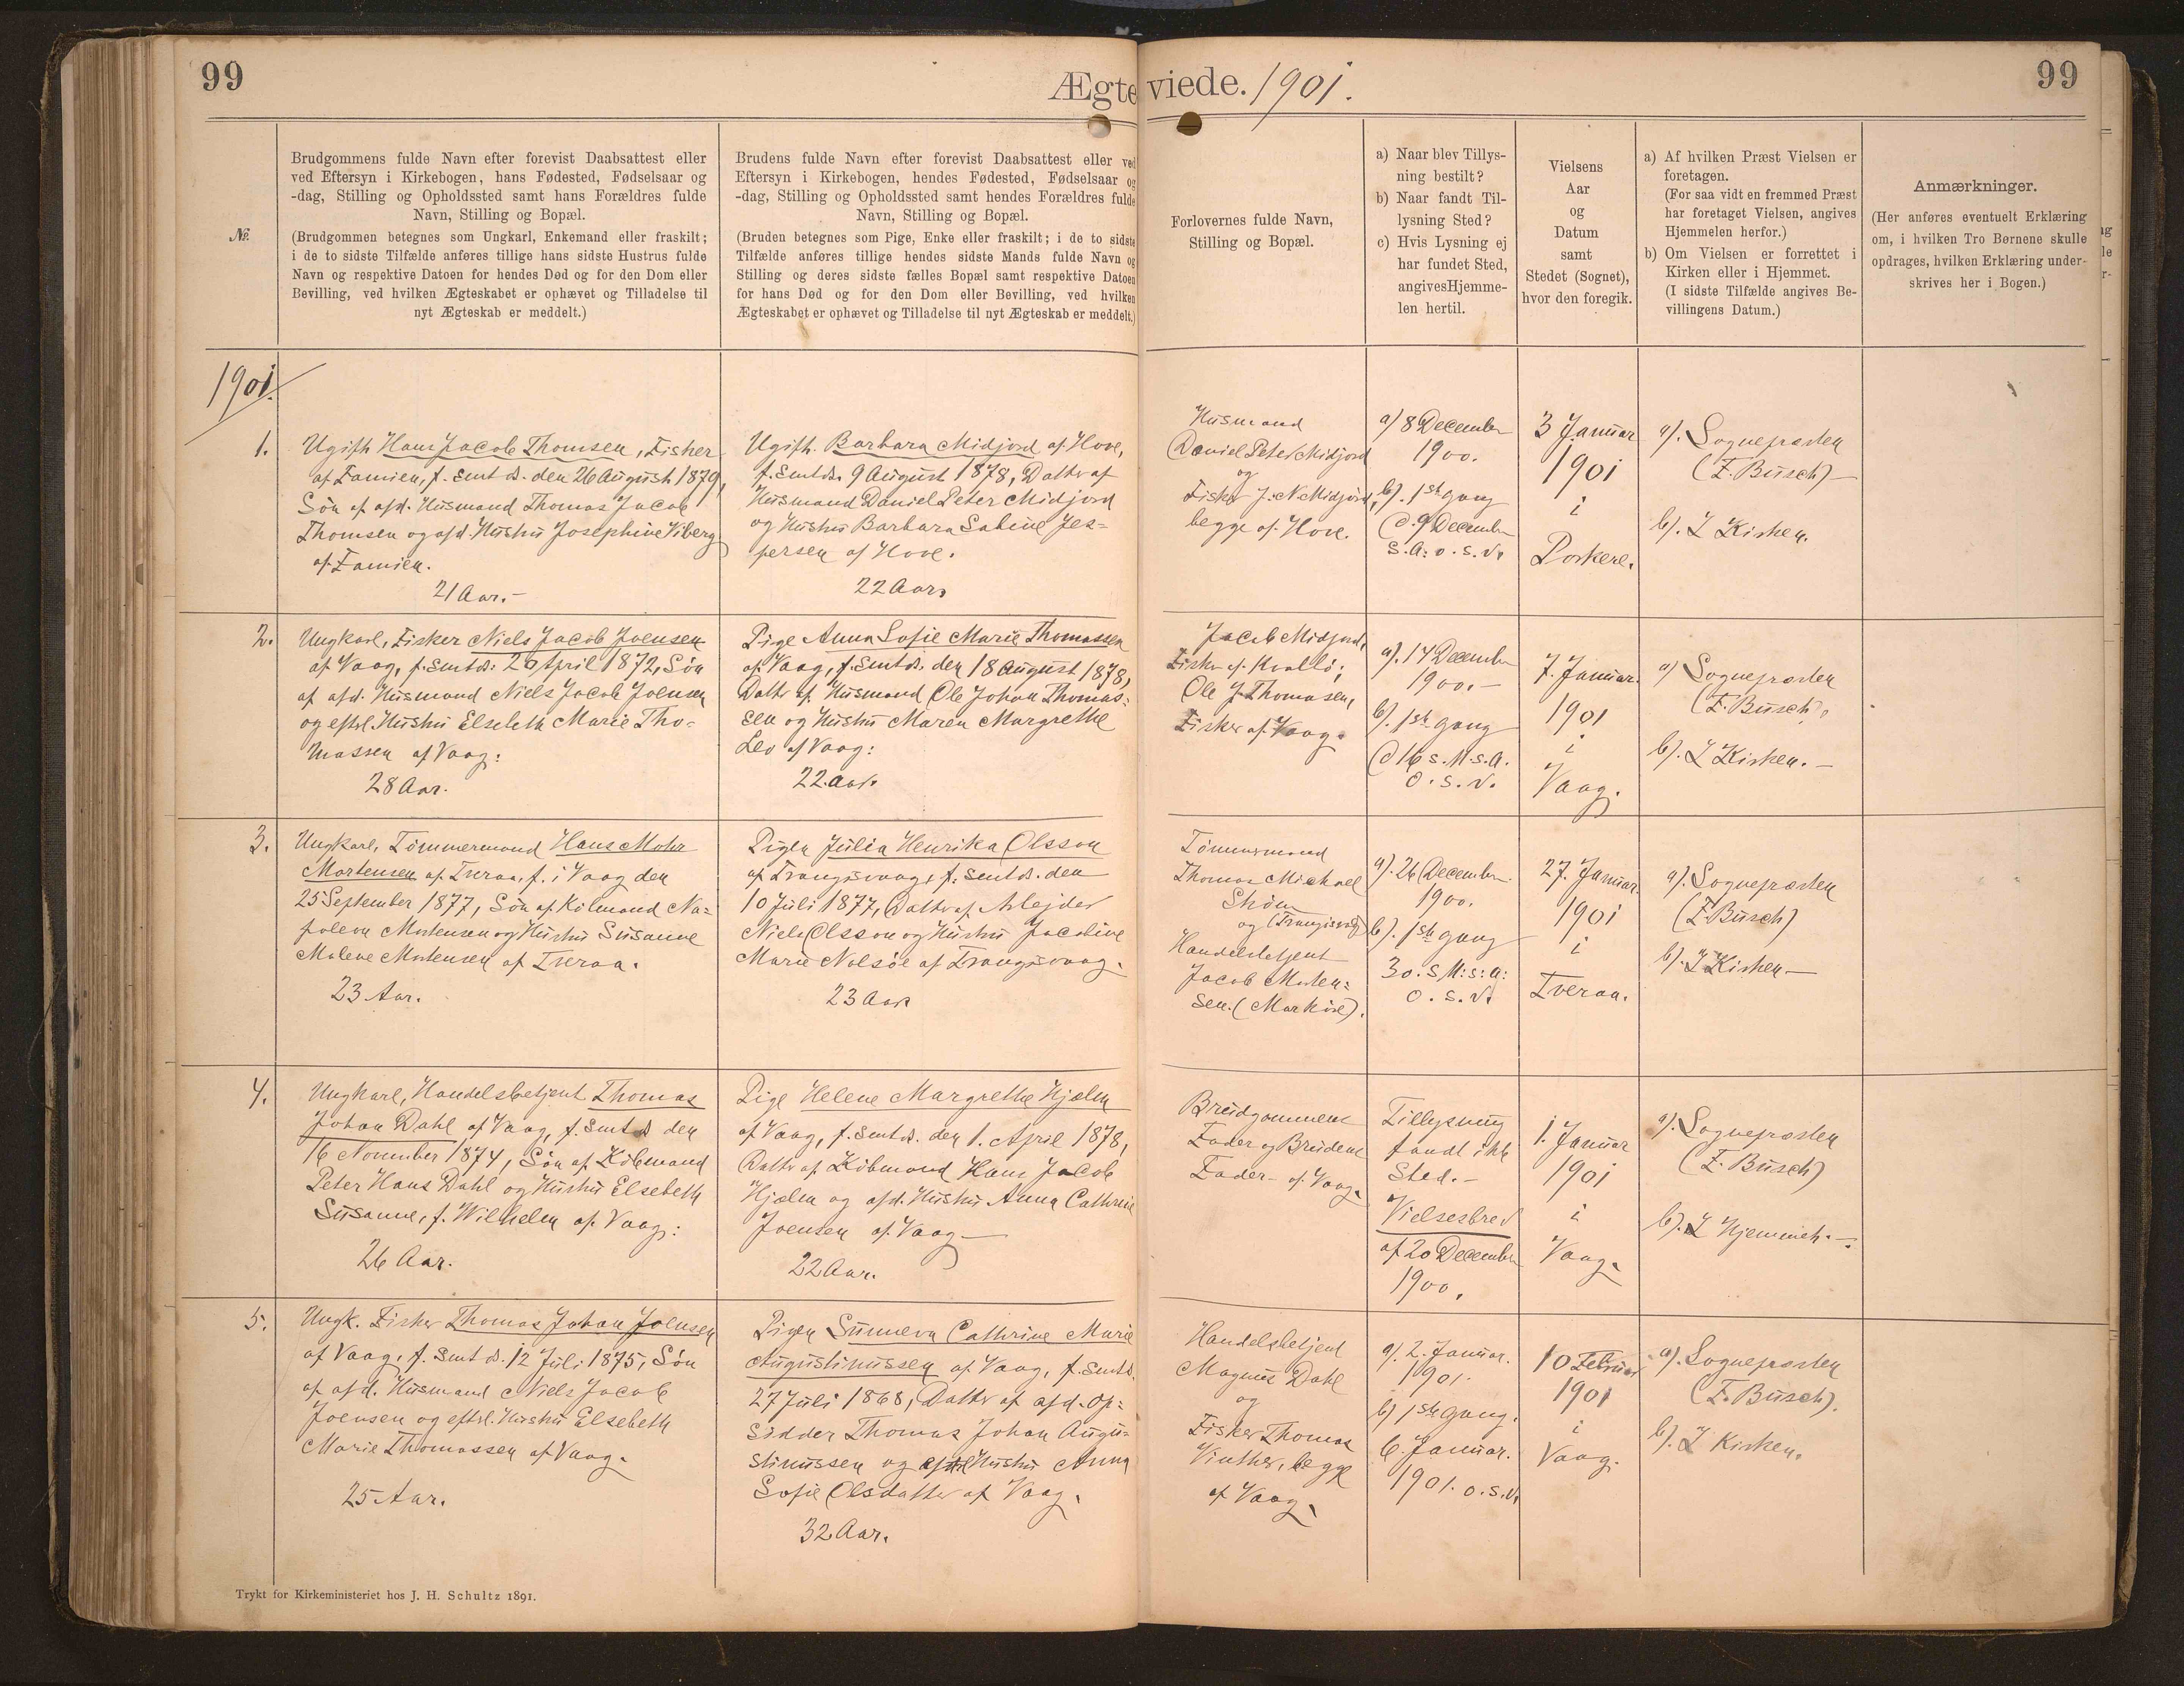 99
Ægteviede. 1901.
99
№
Brudgommens fulde Navn efter forevist Daabsattest eller
ved Eftersyn i Kirkebogen, hans Fødested, Fødselsaar og
-dag, Stilling og Opholdssted samt hans Forældres fulde
Navn, Stilling og Bopæl.
(Brudgommen betegnes som Ungkarl, Enkemand eller fraskilt;
i de to sidste Tilfælde anføres tillige hans sidste Hustrus fulde
Navn og respektive Datoen for hendes Død og for den Dom eller
Bevilling, ved hvilken Ægteskabet er ophævet og Tilladelse til
nyt Ægteskab er meddelt.)
Brudens fulde Navn efter forevist Daabsattest eller ved
Eftersyn i Kirkebogen, hendes Fødested, Fødselsaar og
-dag, Stilling og Opholdssted samt hendes Forældres fulde
Navn, Stilling og Bopæl.
(Bruden betegnes som Pige, Enke eller fraskilt; i de to sidste
Tilfælde anføres tillige hendes sidste Mands fulde Navn og
Stilling og deres sidste fælles Bopæl samt respektive Datoen
for hans Død og for den Dom eller Bevilling, ved hvilken
Ægteskabet er ophævet og Tilladelse til nyt Ægteskab er meddelt.)
Forlovernes fulde Navn,
Stilling og Bopæl.
a) Naar blev Tillys-
ning bestilt?
b) Naar fandt Til-
lysning Sted?
c) Hvis Lysning ej
har fundet Sted,
angives Hjemme-
len hertil.
Vielsens
Aar
og
Datum
samt
Stedet (Sognet),
hvor den foregik.
a) Af hvilken Præst Vielsen er
foretagen.
(For saa vidt en fremmed Præst
har foretaget Vielsen, angives
Hjemmelen herfor.)
b) Om Vielsen er forrettet i
Kirken eller i Hjemmet.
(I sidste Tilfælde angives Be-
villingens Datum.)
Anmærkninger.
(Her anføres eventuelt Erklæring
om, i hvilken Tro Børnene skulle
opdrages, hvilken Erklæring under-
skrives her i Bogen.)
1901.
1.
Ugift Hans Jacob Thomsen, Fisker
af Famien, f. smtds. den 26 August 1879,
Søn af afd. Husmand Thomas Jacob
Thomsen og afd. Hustru Josephine Viberg
af Famien.
21 Aar.-
Ugift. Barbara Midjord af Hove,
f. smtds. 9 August 1878, Datter af
Husmand Daniel Peter Midjord
og Hustru Barbara Sabine Jes=
persen af Hove.
22 Aar.
Husmand
Daniel Peter Midjord
og
Fisker J. N. Midjord,
begge af Hove.
a) 8 December
1900.
b). 1ste gang
d. 9 December
S.A. o.s.v.
3 Januar
1901
i
Porkere.
a). Sognepræsten
(F. Busch) -
b). I Kirken.
2.
Ungkarl, Fisker Niels Jacob Joensen
af Vaag, f. smtds: 26 April 1872, Søn
af afd. Husmand Niels Jacob Joensen
og eftrl. Hustru Elsebeth Marie Tho-
massen af Vaag:
28 Aar.
Pige Anna Sofie Marie Thomassen
af Vaag, f. smtds. den 18 August 1878,
Datter af Husmand Ole Johan Thomas=
sen og Hustru Maren Margrethe
Leo af Vaag:
22 Aar.
Jacob Midjord,
Fisker af Kvalbø;
Ole J. Thomasen,
Fisker af Vaag.
a). 14 December
1900.-
b). 1ste gang
d 16 s. M. s. A.
o. s. v.
7. Januar.
1901
i
Vaag.
a) Sognepræsten
(F. Busch).
b). I Kirken. -
3.
Ungkarl, Tömmermand Hans Mohr
Mortensen af Tveraa, f. i Vaag den
25 September 1877, Søn af Köbmand Na=
poleon Mortensen og Hustru Susanne
Malene Mortensen af Tveraa.
23 Aar.
Pigen Julia Henrika Olsson
af Trangisvaag, f. smtds. den
10 Juli 1877, Datter af Arbejder
Niels Olsson og Hustru Jacoline
Marie Nolsöe af Trangisvaag.
23 Aar
Tömmermand
Thomas Michael
og (Trangisvaag)
Handelsbetjent
Jacob Morten=
sen.
a). 26 December.
1900.
b). 1ste gang
30. s M: s: A:
o. s. v.
27. Januar
1901
i
Tveraa.
a). Sognepræsten
(F. Busch)
b). I Kirken -
4.
Ungkarl, Handelsbetjent Thomas
Johan Dahl af Vaag, f. smtds den
16 November 1874, Søn af Köbmand
Peter Hans Dahl og Hustru Elsebeth
Susanne, f. Wilhelm af Vaag:
26 Aar.
Pige Helene Margrethe Hjælm
af Vaag, f. smtds. den 1. April 1878,
Datter af Köbmand Hans Jacob
Hjælm og afd. Hustru Anna Cathrine
Joensen af Vaag -
22 Aar.
Brudgommens
Fader og Brudens
Fader - af Vaag.
Tillysning
fandt ikke
Sted. -
Vielsesbrev
af 20 December
1900.
1. Januar
1901
i
Vaag.
a). Sognepræsten
(F. Busch)
b). I Hjemmet. -
5.
Ungk. Fisker Thomas Johan Joensen
af Vaag, f. smtds. 12 Juli 1875, Søn
af afd. Husmand Niels Jacob
Joensen og eftrl. Hustru Elsebeth
Marie Thomassen af Vaag.
25 Aar.
Pigen Sunneva Cathrine Marie
Augustinussen af Vaag, f. smtds.
27 Juli 1868, Datter af afd. Op=
sidder Thomas Johan Augu=
stinussen og Hustru Anna
Sofie Olsdatter af Vaag.
32 Aar.
Handelsbetjent
Magnus Dahl
og
Fisker Thomas
Vinther, begge
af Vaag.
a). 2. Januar.
1901.
b) 1ste Gang.
6. Januar.
1901. o.s.v.
10 Februar
1901
i
Vaag.
a). Sognepræsten
(F. Busch).
b). I Kirken.
Trykt for Kirkeministeriet hos J. H. Schultz 1891.